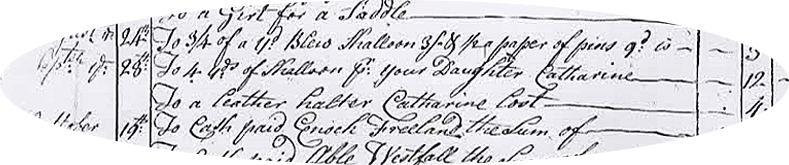 To a Girt for a Saddle
24th To 3/4 of a yd Blew Shalloon 3/- & ½ a paper of pins 9d is
28th To 4 yds of Shalloon pr. your Daughter Catharine 12
To a leather halter Catharine lost 4
19th To Cash paid Enoch Freeland the Sum of
paid Able Westfall the